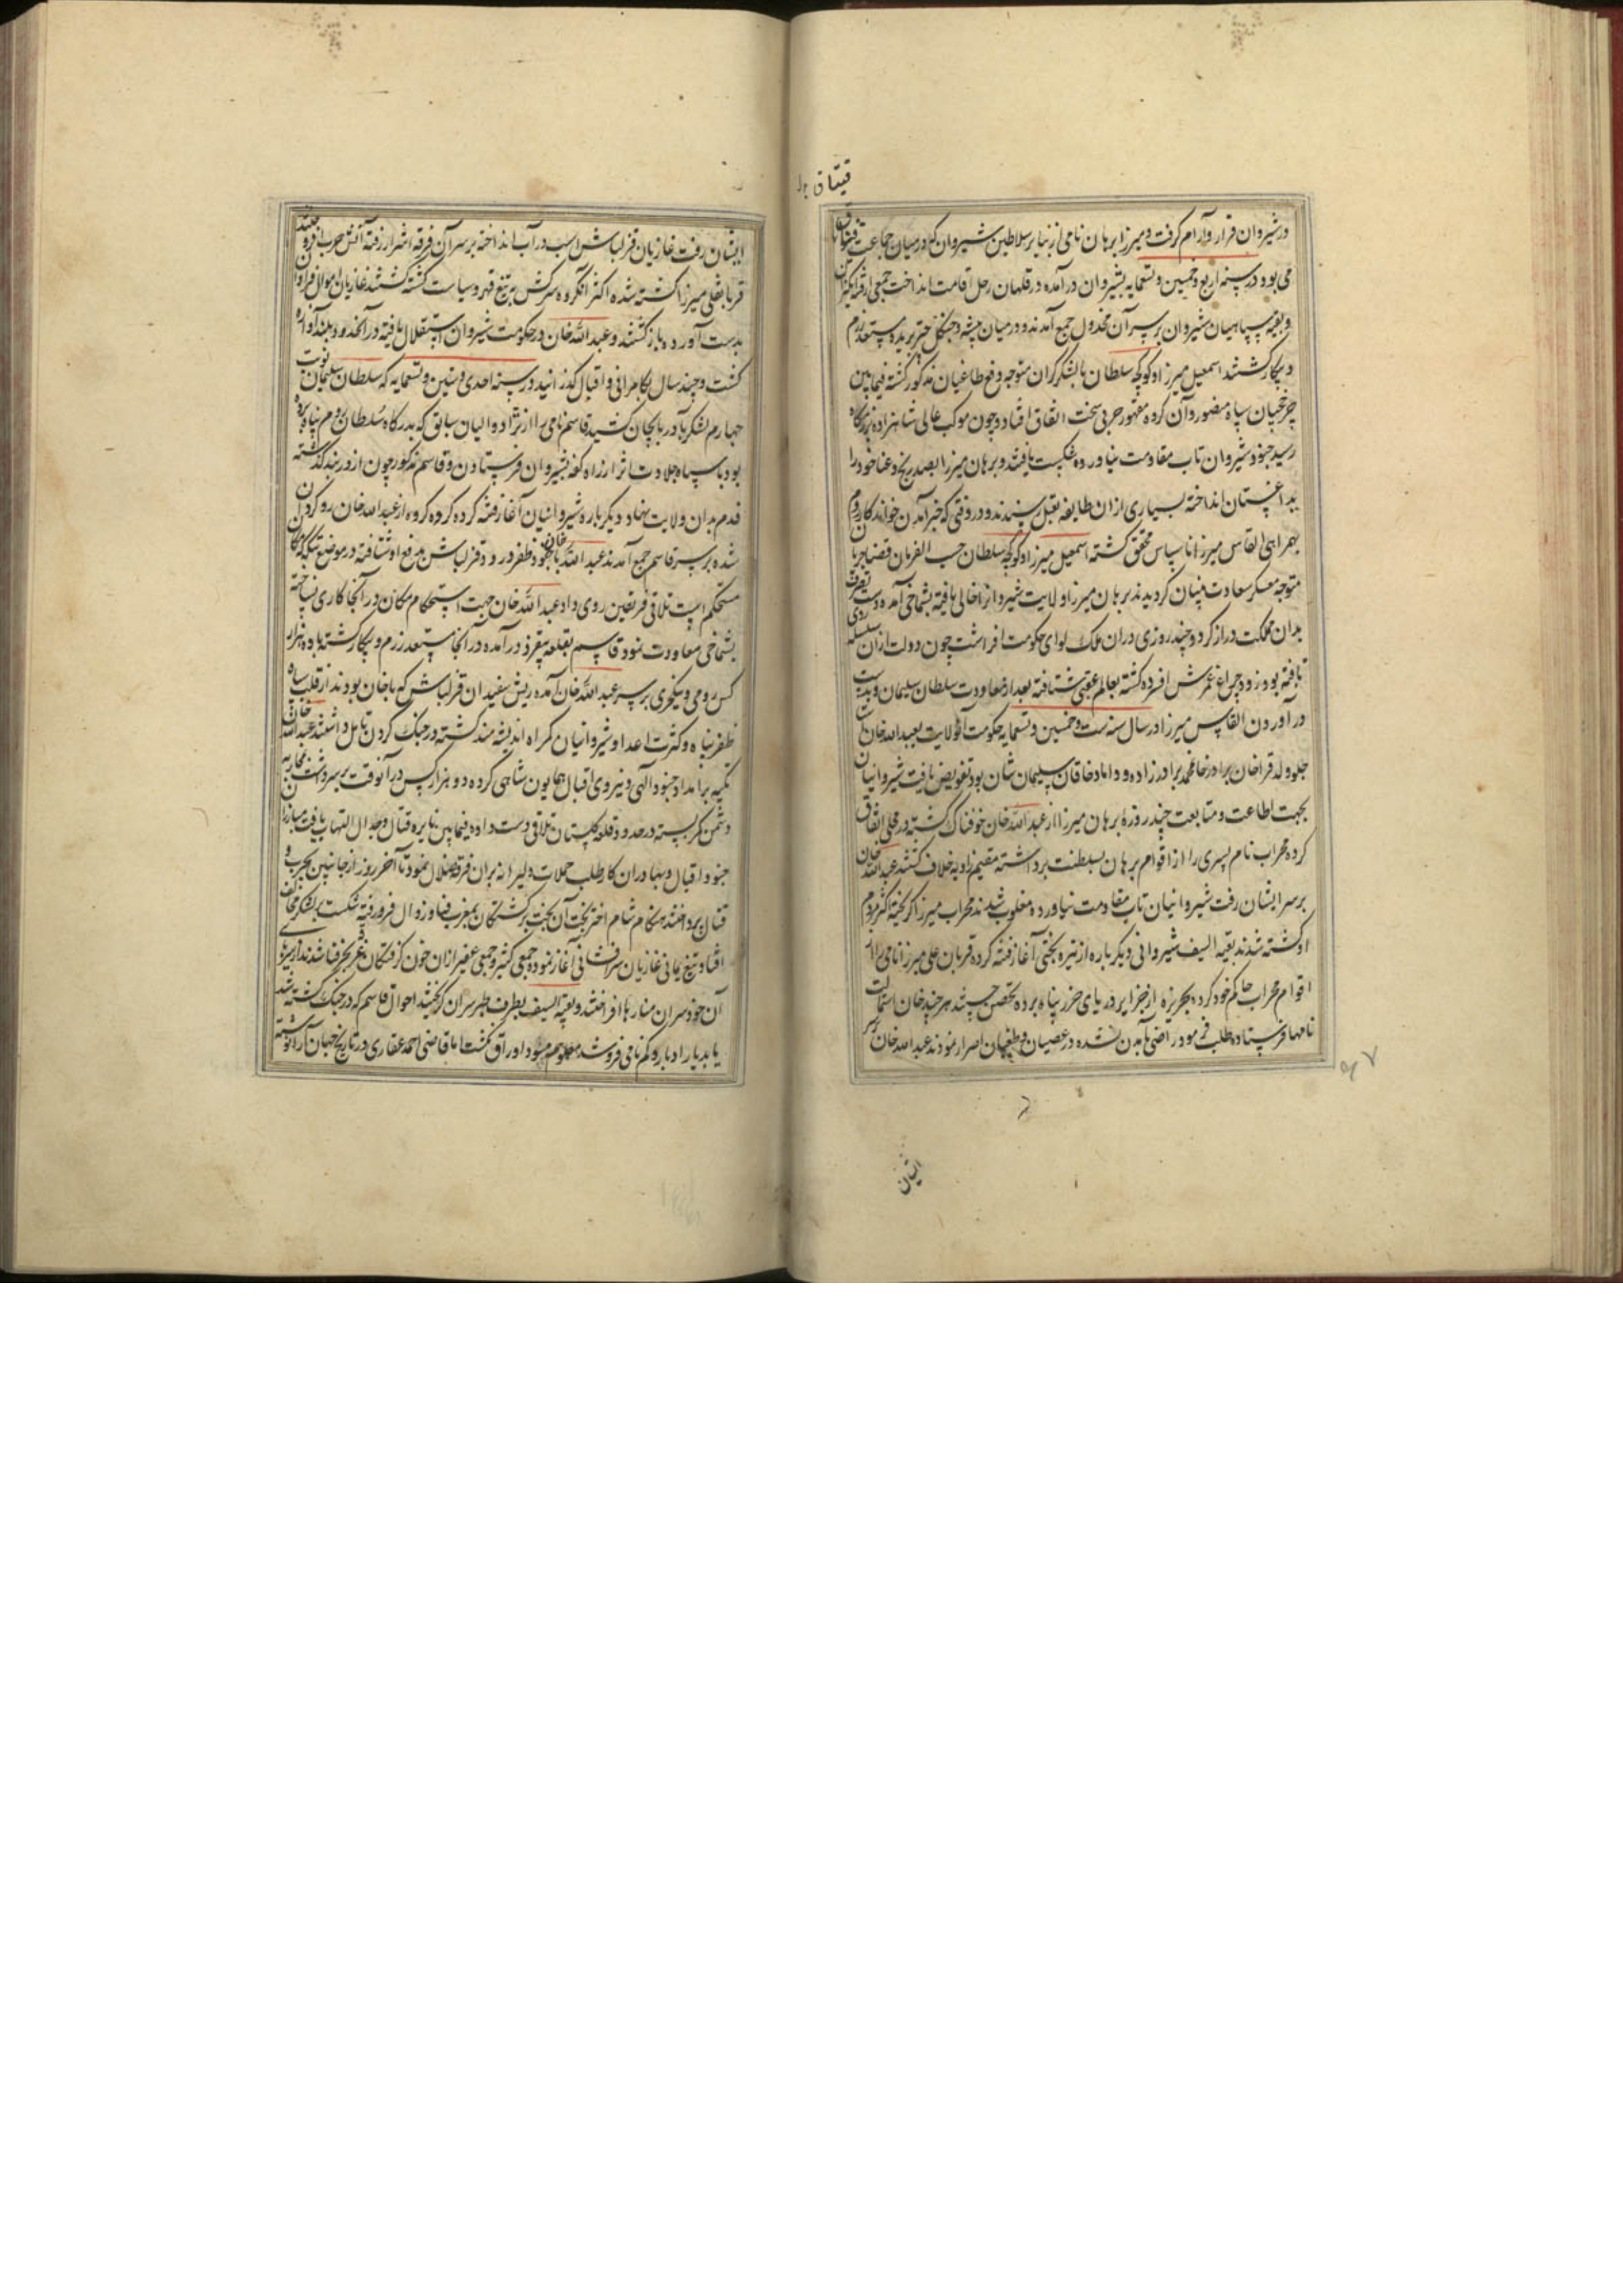 قیتاق
در شیروان قرار و آرام گرفت و میرزا برهان نامی از نبایر سلاطین شیروان که در میان جماعت قیتاق
می‌بود در سنه اربع و خمسین و تسعمایه بشیروان در آمده در قلهان رحل اقامت انداخت جمعی از قرابکران
و بقیه سپاهیان شیروان بر سر آن مخذول جمع آمدند و در میان بیشه و جنگل چپر بریده مستعد رزم
و پیکار گشتند اسمعیل میرزا و کوکچه سلطان با لشکر گران متوجه دفع طاغیان مذکور گشته فیمابین
چرخچیان سپاه منصور و آن گروه مقهور حربی سخت اتفاق افتاد و چون موکب عالی شاهزاده بزمگاه
رسید جنود شیروان تاب مقاومت نیاورده شکست یافتند و برهان میرزا بصد رنج و عنا خود را
بداغستان انداخته بسیاری از ان طایفه بقتل رسیدند و در وقتی که خبر آمدن خواندکار روم
بهمراهی القاس میرزا ناسپاس محقق گشته اسمعیل میرزا و کوکچه سلطان حسب الفرمان قضا جریان
متوجه معسکر سعادت بنیان گردیدند برهان میرزا ولایت شیروانرا خالی یافته بشماخی آمده دست تصرف
بدان مملکت دراز کرد و چند روزی دران ملک لوای حکومت افراشت چون دولت ازان سلسله روی
تافته بود زود چراغ عمرش افسرده گشته بعالم عقبی شتافته بعد از معاودت سلطان سلیمان و بدست
در آوردن القاس میرزا در سال سنه ست و خمسین و تسعمایه حکومت آنولایت بعبدالله خان
ولد قراخان برادر خانمحمد برادرزاده و داماد خاقان سلیمان شان بود تفویض یافت شیروانیان
بجهت اطاعت و متابعت چند روزه برهان میرزا از عبدالله خان خوفناک گشته در محلی اتفاق
کرده محراب نام پسری را از اقوام برهان بسلطنت برداشته مقیم زاویه خلاف گشتند عبدالله خان
بر سر ایشان رفت شیروانیان تاب مقاومت نیاورده مغلوب شدند محراب میرزا گریخته اکثر مردم
او کشته شدند بقیه السیف شیروانی دیگر باره از تیره بختی آغاز فتنه کرده قربان علی میرزا نامی را از
اقوام محراب حاکم خود کرده بجزیره از جزایر دریای خزر پناه برده تحصن جستند هر چند خان استمالت
نامها فرستاده طلب فرمود راضی بآمدن نشده در عصیان و طغیان اصرار نمودند عبدالله خان بر سر
۹۷
ایشان
ایشان رفت غازیان قزلباش اسب در آب انداخته بر سر آن فرقه اشرار رفته آتش حرب افروختند
قربانعلی میرزا کشته شده اکثر آنگروه سرکش بتیغ قهر و سیاست کشته گشتند غازیان اموال فراوان
بدست آورده باز گشتند و عبدالله خان در حکومت شیروان استقلال یافته در آنحدود بلند آوازه
گشت و چند سال بکامرانی و اقبال گذرانید در سنه احدی و ستین و تسعمایه که سلطان سلیمان نوبت
چهارم لشکر بآذربایجان کشید قاسم نامی را از نژاد والیان سابق که بدرگاه سلطان روم پناه برده
بود با سپاه جلادت اثر از راه کفه بشیروان فرستادن و قاسم مذکور چون از دربند گذشته
قدم بدان ولایت نهاد دیگر باره شیروانیان آغاز فتنه کرده گروه گروه از عبدالله خان روگردان
شده بر سر قاسم جمع آمدند عبدالله خان با جنود ظفر ورود قزلباش بدفع او شتافته در موضع تنگه که مکان
مستحکم است تلاقی فریقین روی داد عبدالله خان جهت استحکام مکان در آنجا کاری نساخته
بشماخی معاودت نمود قاسم بقلعه بیقرد در آمده در آنجا مستعد رزم و پیکار گشته با ده هزار
کس رومی و ینکچری بر سر عبدالله خان آمده ریش سفیدان قزلباش که با خان بودند از قلت سپاه
ظفر پناه و کثرت اعدا و شیروانیان گمراه اندیشه‌مند گشته در جنگ کردن تامل داشتند عبدالله خان
تکیه بر امداد جنود الهی و نیروی اقبال همایون شاهی کرده دو هزار کس در آنوقت بر سر داشت بمحاربه
دشمن کمر بسته در حدود قلعه گلستان تلاقی دست داده فیمابین نایره قتال و جدال التهاب یافت مبارزان
جنود اقبال و بهادران کار طلب حملات دلیرانه بران فرقه ضلال نمود تا آخر روز از جانبین بحرب و
قتال پرداختند هنگام شام اختر بخت آن بخت برگشتگان بمغرب فنا و زوال فرو رفته شکست بر لشکر مخالف
افتاد و تیغ یمانی غازیان سرافشانی آغاز نموده جمعی کثیر و جمعی غفیر از ان خون گرفتگان غریق بحر فنا شدند از سرهای
آن خود سران منارها افراختند و بقیه السیف بطرف طبرسران گریختند احوال قاسم که در جنگ کشته شد
یا بدیار ادبار و گم نامی فرو شد معلوم مسود اوراق نگشت اما قاضی احمد غفاری در تاریخ جهان آرا نوشته